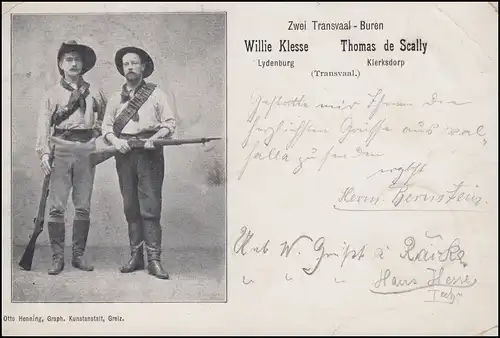 Zwei Transvaal-Buren
Willie Klesse Thomas de Scally
Lydenburg Klerksdorp
(Transvaal.)
Gestatte mir Ihnen die
herzlichsten Grüße aus Wal-
halla zu senden
ergbst
Herm. Bernstein
W. Grüßt
" " " Hans Hesse
Otto Henning, Graph. Kunstanstalt, Greiz.